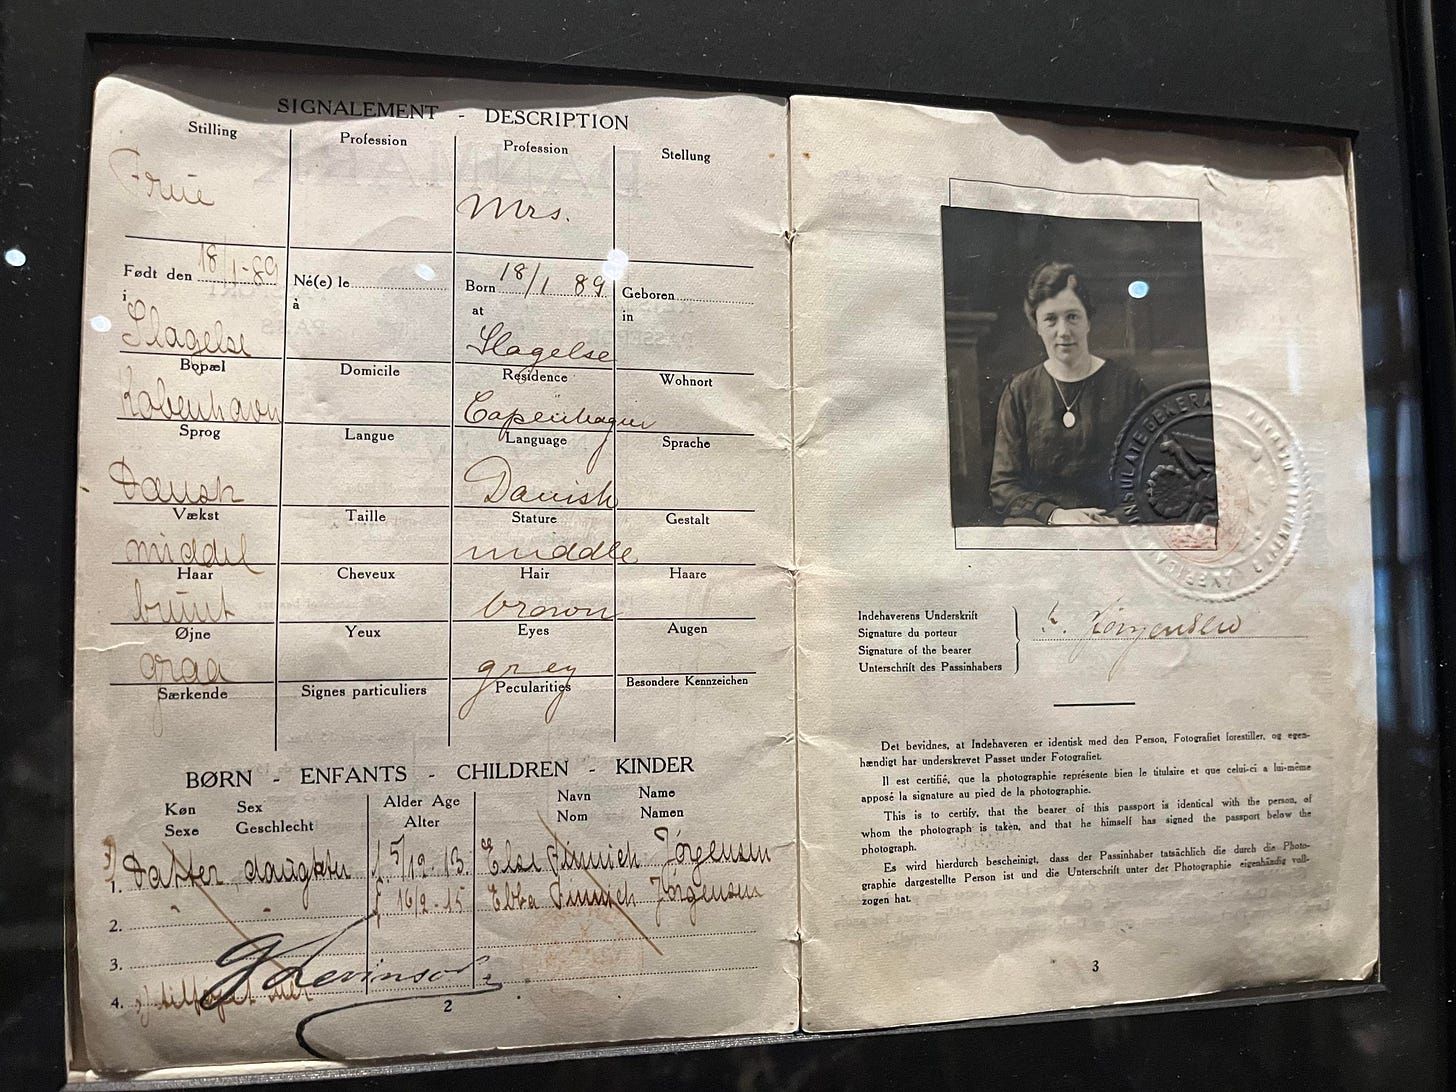 SIGNALEMENT - DESCRIPTION
Stilling Profession Profession Stellung
Frue Mrs.
Født den 18/1-89 Né(e) le Born 18/1 89 Geboren
i à at in
Slagelse Slagelse
Bopæl Domicile Residence Wohnort
København Copenhagen
Sprog Langue Language Sprache
Dansk Danish
Vækst Taille Stature Gestalt
middel middle
Haar Cheveux Hair Haare
brunt brown
Øjne Yeux Eyes Augen
graa grey
Særkende Signes particuliers Pecularities Besondere Kennzeichen
BØRN - ENFANTS - CHILDREN - KINDER
Køn Sex Alder Age Navn Name
Sexe Geschlecht Alter Nom Namen
1. Datter daughter f. 5/12-13. Else Jørgensen
2. " " f. 16/2-15 Ebba Jørgensen
3.
4.
G Levinson
2
CONSULATE GENERAL
Indehaverens Underskrift
Signature du porteur
Signature of the bearer
Unterschrift des Passinhabers
Jörgensen
Det bevidnes, at Indehaveren er identisk med den Person, Fotografiet forestiller, og egen-
hændigt har underskrevet Passet under Fotografiet.
Il est certifié, que la photographie représente bien le titulaire et que celui-ci a lui-même
apposé la signature au pied de la photographie.
This is to certify, that the bearer of this passport is identical with the person, of
whom the photograph is taken, and that he himself has signed the passport below the
photograph.
Es wird hierdurch bescheinigt, dass der Passinhaber tatsächlich die durch die Photo-
graphie dargestellte Person ist und die Unterschrift unter der Photographie eigenhändig voll-
zogen hat.
3